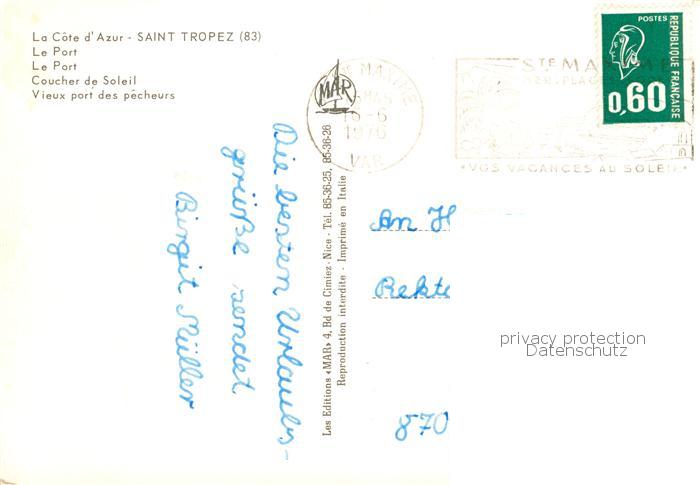 La Côte d'Azur - SAINT TROPEZ (83)
Le Port
Le Port
Coucher de Soleil
Vieux port des pêcheurs
MAR
MAXIME
16-6
1976
VAR
STE MAXIME
VOS VACANCES AU SOLEIL
POSTES
REPUBLIQUE FRANÇAISE
0,60
Les Editions «MAR» 4, Bd de Cimiez - Nice - Tél. 85-36-25, 85-36-26
Reproduction interdite - Imprimé en Italie
Die besten Urlaubs-
grüße sendet
Birgit Müller
An H
Rekto
870
privacy protection
Datenschutz